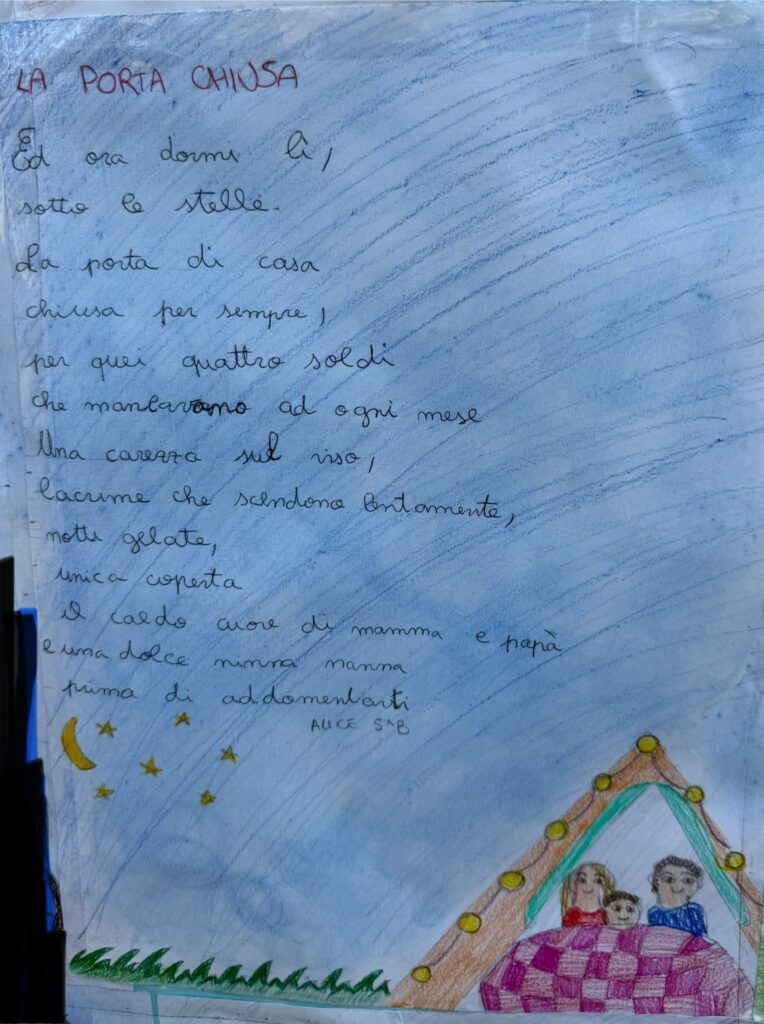 LA PORTA CHIUSA
Ed ora dormi lì,
sotto le stelle.
La porta di casa
chiusa per sempre,
per quei quattro soldi
che mancavano ad ogni mese
Una carezza sul viso,
lacrime che scendono lentamente,
notti gelate,
unica coperta
il caldo cuore di mamma e papà
e una dolce ninna nanna
prima di addomentarti
ALICE 5^B